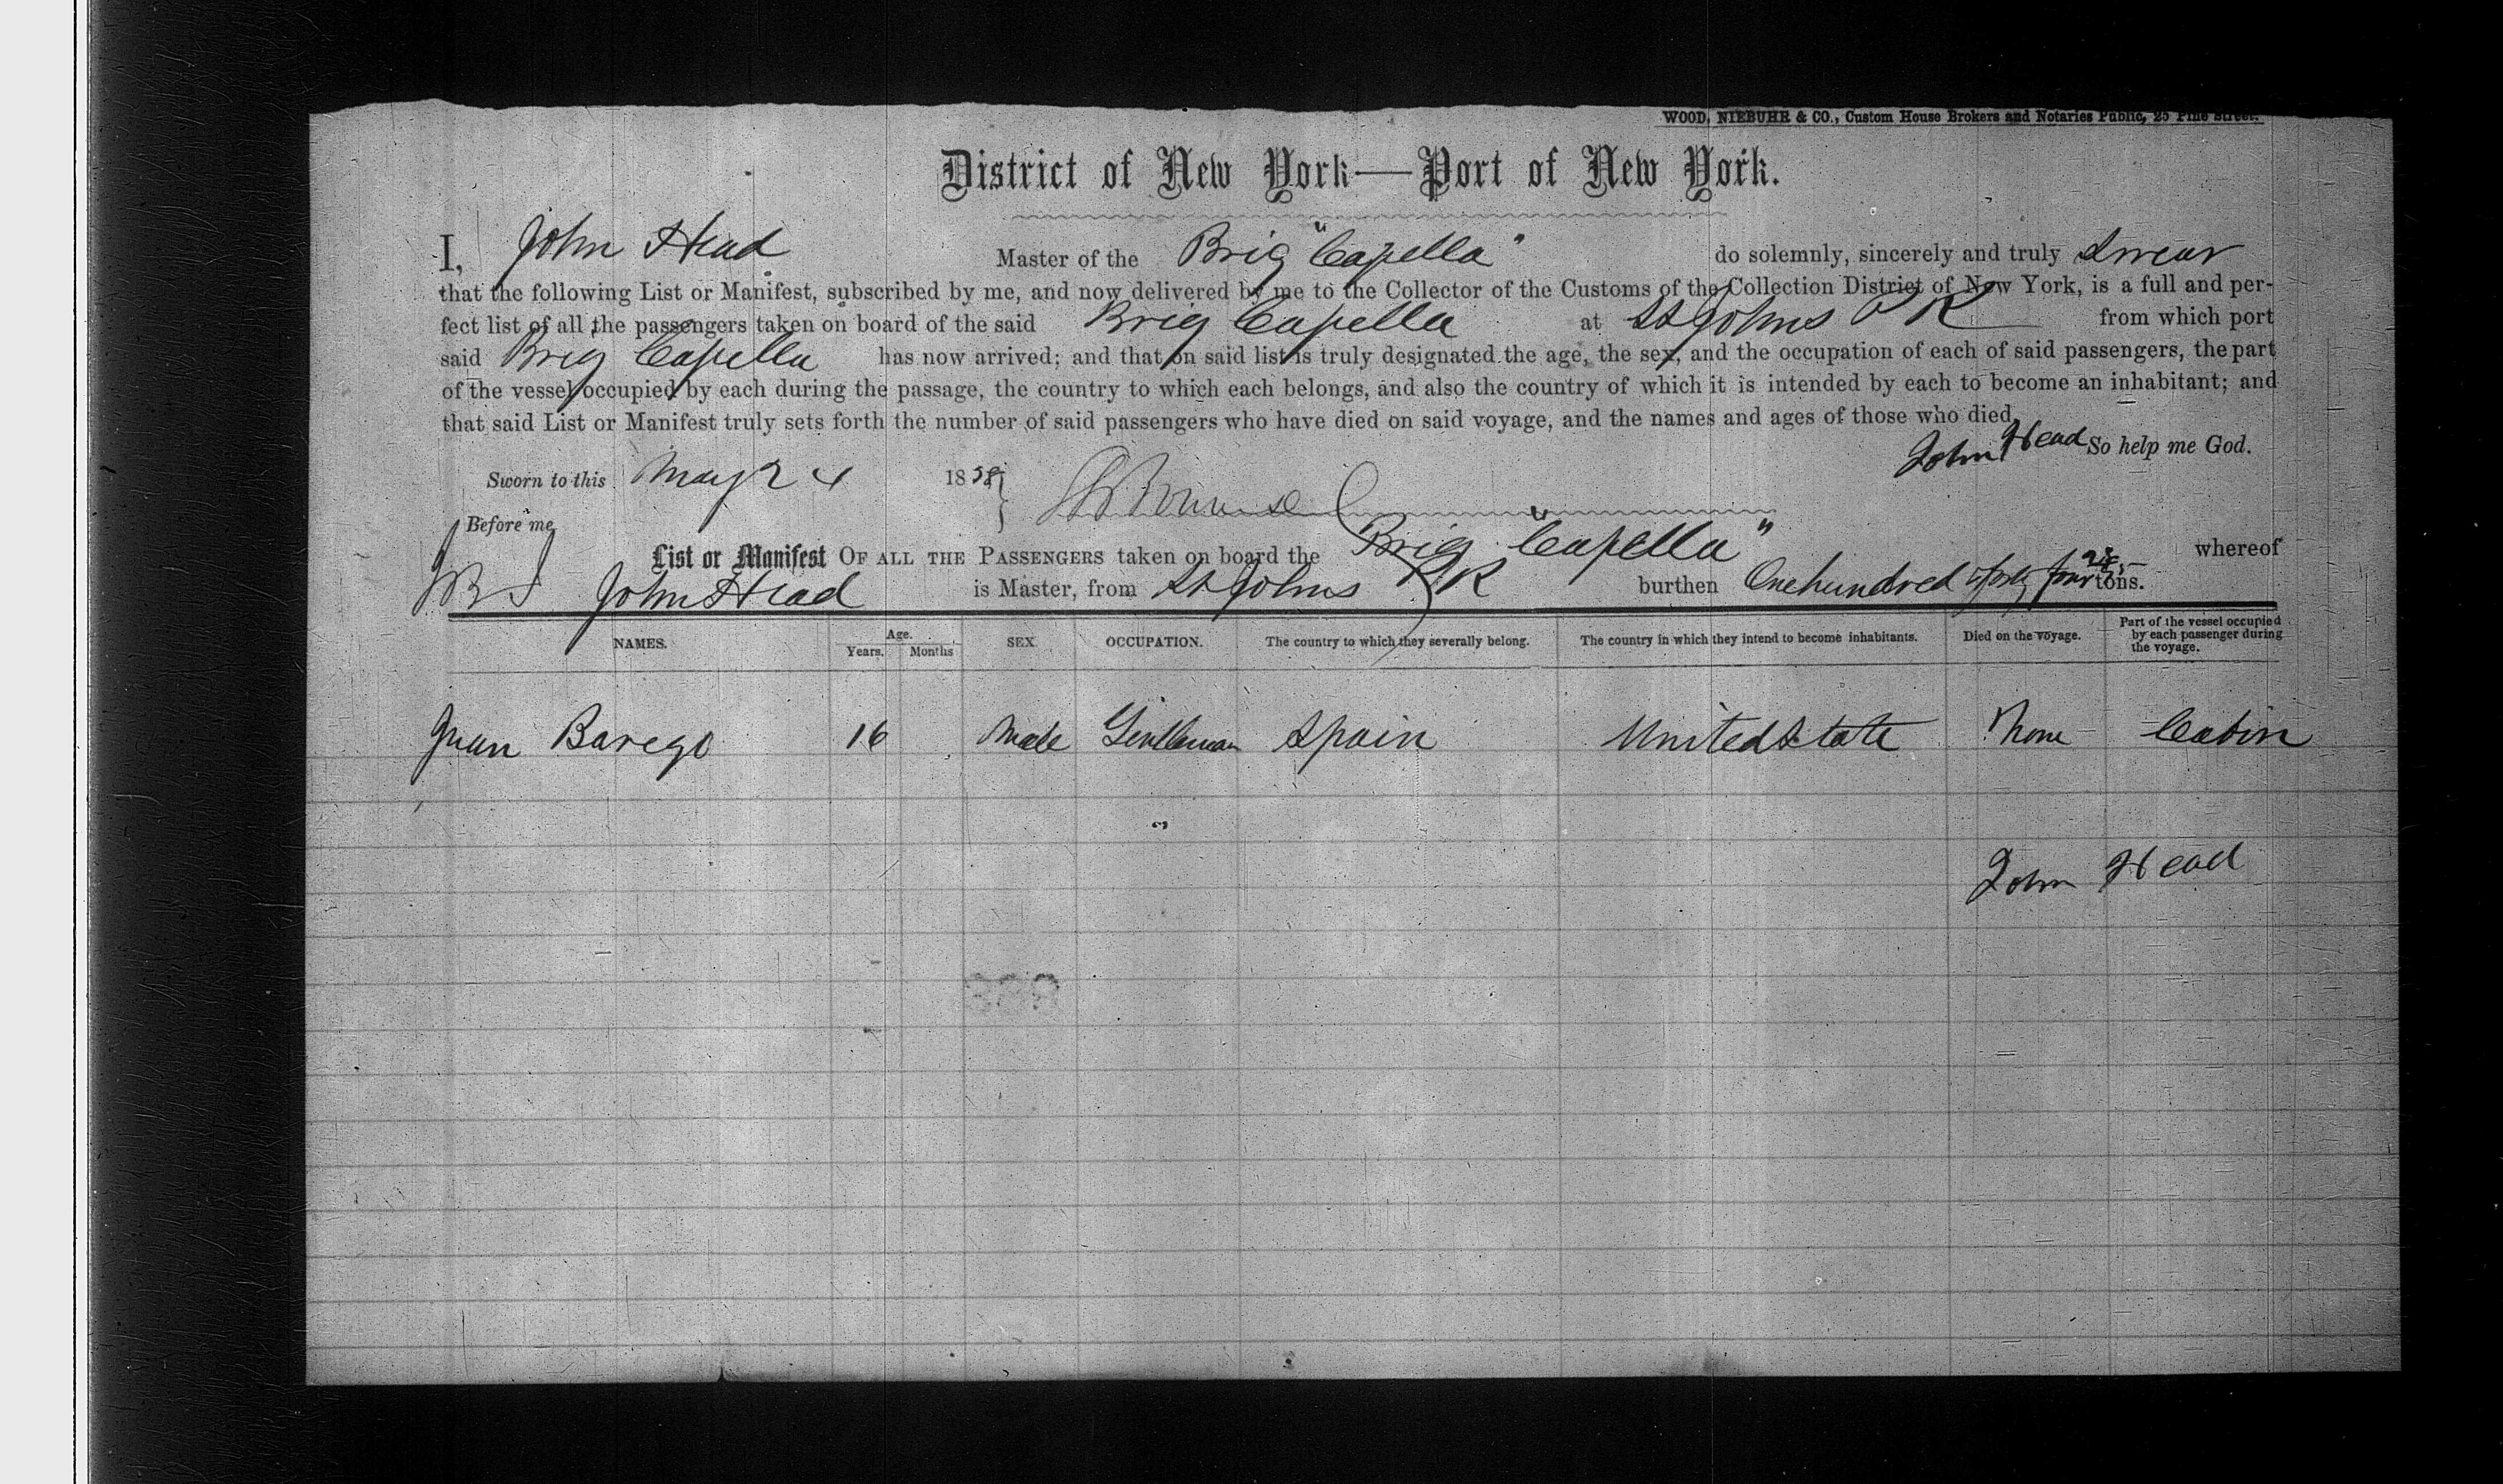 WOOD, NIEBUHR & CO., Custom House Brokers and Notaries Public, 25 Pine Street.
District of New York—Port of New York.
I, John Head Master of the Brig "Capella" do solemnly, sincerely and truly Swear
that the following List or Manifest, subscribed by me, and now delivered by me to the Collector of the Customs of the Collection District of New York, is a full and per-
fect list of all the passengers taken on board of the said Brig Capella at St Johns P R from which port
said Brig Capella has now arrived; and that on said list is truly designated the age, the sex, and the occupation of each of said passengers, the part
of the vessel occupied by each during the passage, the country to which each belongs, and also the country of which it is intended by each to become an inhabitant; and
that said List or Manifest truly sets forth the number of said passengers who have died on said voyage, and the names and ages of those who died.
John Head So help me God.
Sworn to this May 24 18
Before me
List or Manifest OF ALL THE PASSENGERS taken on board the Brig "Capella" whereof
John Head is Master, from St Johns P R burthen One hundred & forty four tons.
NAMES. Age. Years. Months SEX. OCCUPATION. The country to which they severally belong. The country in which they intend to become inhabitants. Died on the voyage. Part of the vessel occupied by each passenger during the voyage.
Juan Barego 16 Male Gentleman Spain United State None Cabin
John Head